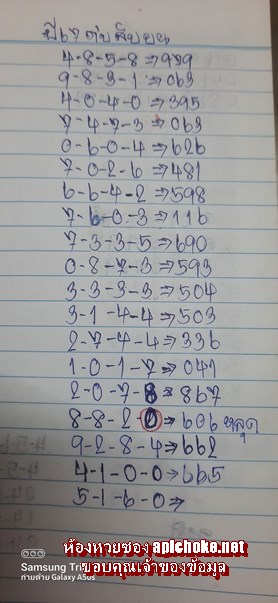 ปี67 ต่ำสิบบน
4-8-5-8⇒979
9-8-3-1⇒063
4-0-4-0⇒395
7-4-7-3⇒063
0-6-0-4⇒626
7-0-2-6⇒481
6-6-4-2⇒598
7-6-0-3⇒116
7-3-3-5⇒690
0-8-7-3⇒593
3-3-3-3⇒504
3-1-4-4⇒503
2-7-4-4⇒336
1-0-1-7⇒041
2-0-7-8⇒867
8-8-2-0⇒606 หลุด
9-2-8-4⇒662
4-1-0-0⇒665
5-1-6-0⇒
ห้องหวยซอง aplchoke.net
ขอบคุณเจ้าของข้อมูล
Samsung Tri
ถ่ายด้วย Galaxy A50s